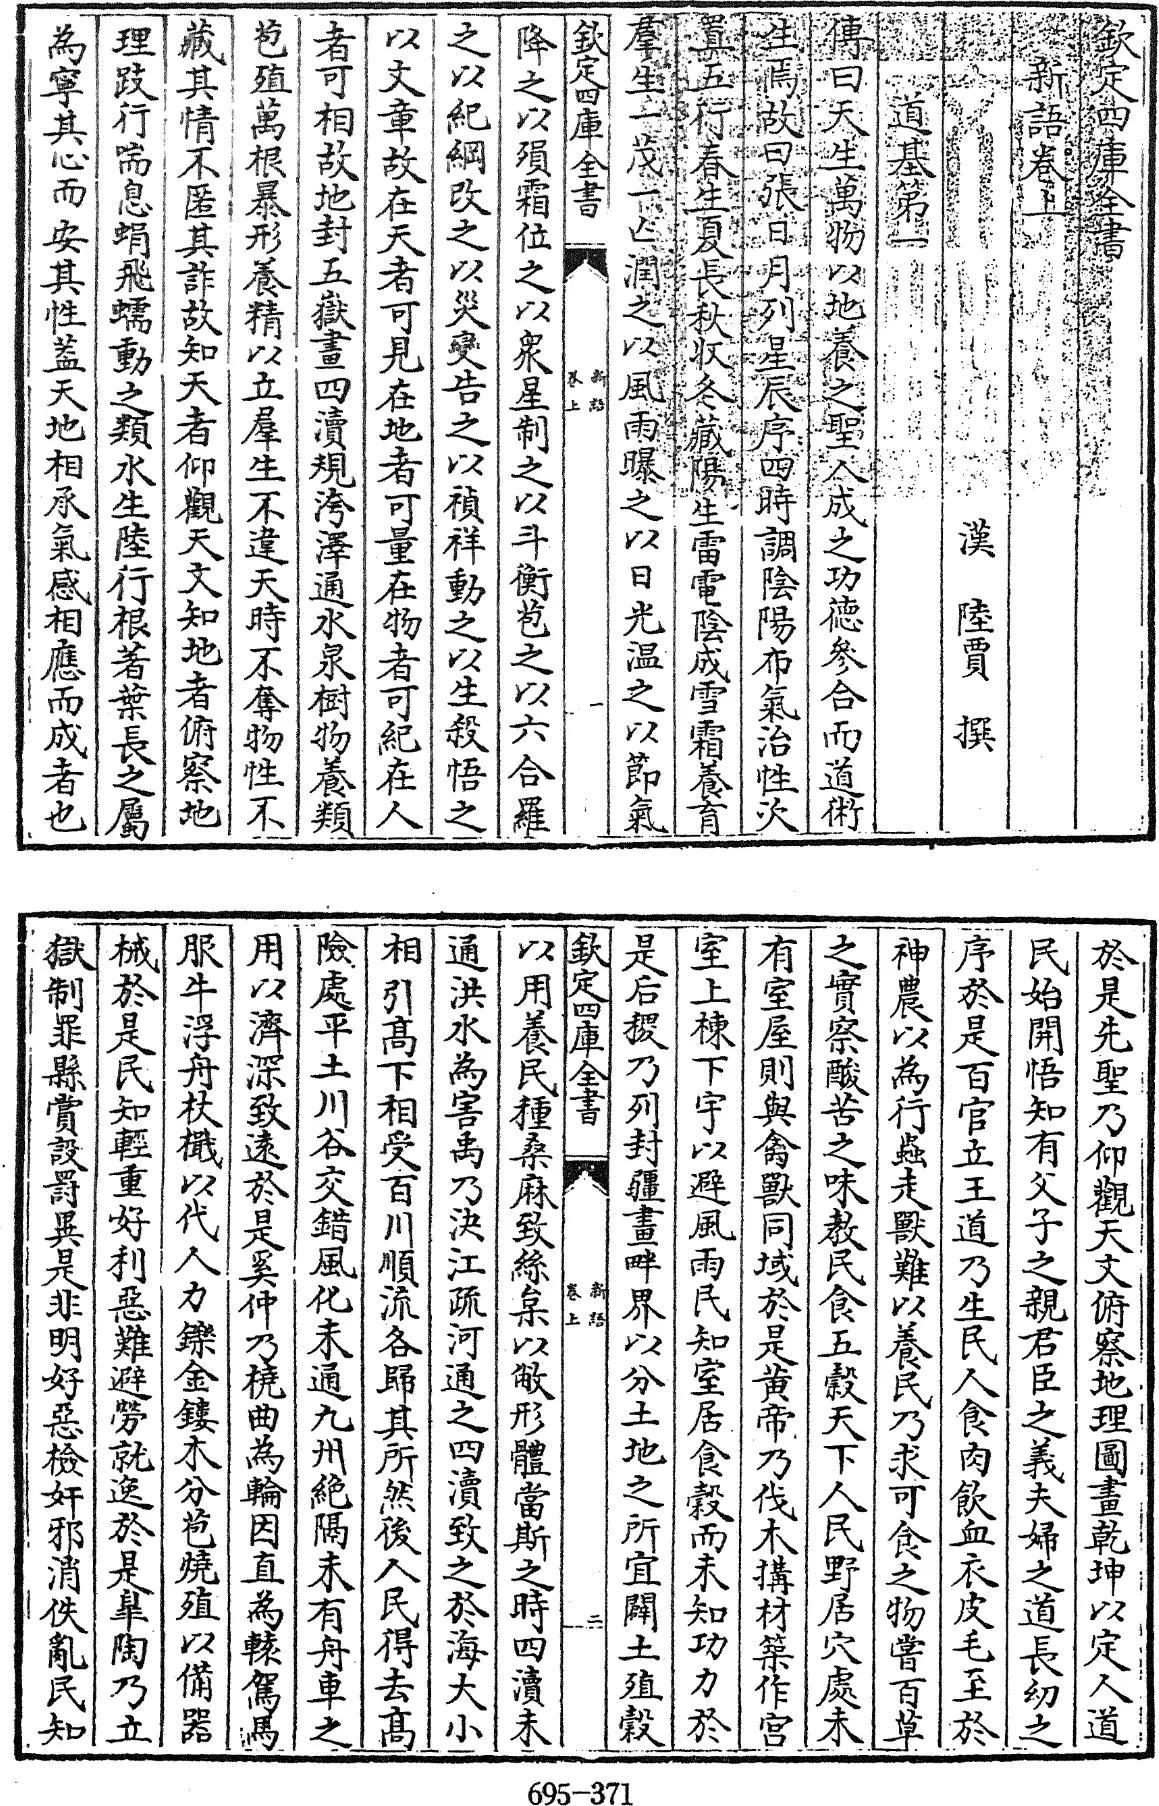 欽定四庫全書
新語卷上
漢 陸賈 撰
道基第一
傳曰天生萬物以地養之聖人成之功德參合而道術
生焉故曰張日月列星辰序四時調陰陽布氣治性次
置五行春生夏長秋收冬藏陽生雷電陰成雪霜養育
羣生一茂一亡潤之以風雨曝之以日光温之以節氣
欽定四庫全書
新語
卷上
一
降之以殞霜位之以衆星制之以斗衡苞之以六合羅
之以紀綱改之以災變告之以禎祥動之以生殺悟之
以文章故在天者可見在地者可量在物者可紀在人
者可相故地封五嶽畫四瀆規洿澤通水泉樹物養類
苞殖萬根暴形養精以立羣生不違天時不奪物性不
藏其情不匿其詐故知天者仰觀天文知地者俯察地
理跂行喘息蜎飛蠕動之類水生陸行根著葉長之屬
為寧其心而安其性葢天地相承氣感相應而成者也
於是先聖乃仰觀天文俯察地理圖畫乾坤以定人道
民始開悟知有父子之親君臣之義夫婦之道長幼之
序於是百官立王道乃生民人食肉飲血衣皮毛至於
神農以為行蟲走獸難以養民乃求可食之物嘗百草
之實察酸苦之味教民食五穀天下人民野居穴處未
有室屋則與禽獸同域於是黄帝乃伐木搆材築作宮
室上棟下宇以避風雨民知室居食穀而未知功力於
是后稷乃列封疆畫畔界以分土地之所宜闢土殖穀
欽定四庫全書
新語
卷上
二
以用養民種桑麻致絲枲以敝形體當斯之時四瀆未
通洪水為害禹乃決江疏河通之四瀆致之於海大小
相引高下相受百川順流各歸其所然後人民得去高
險處平土川谷交錯風化未通九州絶隔未有舟車之
用以濟深致遠於是奚仲乃橈曲為輪因直為轅駕馬
服牛浮舟杖檝以代人力鑠金鏤木分苞燒殖以備器
械於是民知輕重好利惡難避勞就逸於是臯陶乃立
獄制罪縣賞設罸異是非明好惡檢奸邪消佚亂民知
695-371